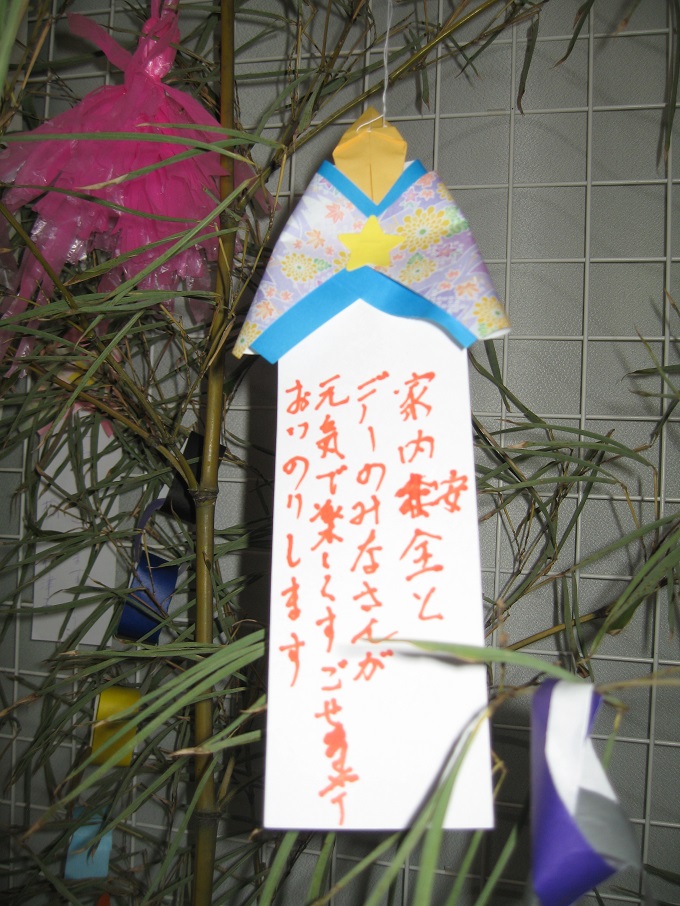 家内安全と
デーのみなさんが
元気で楽しくすごせます様
おいのりします